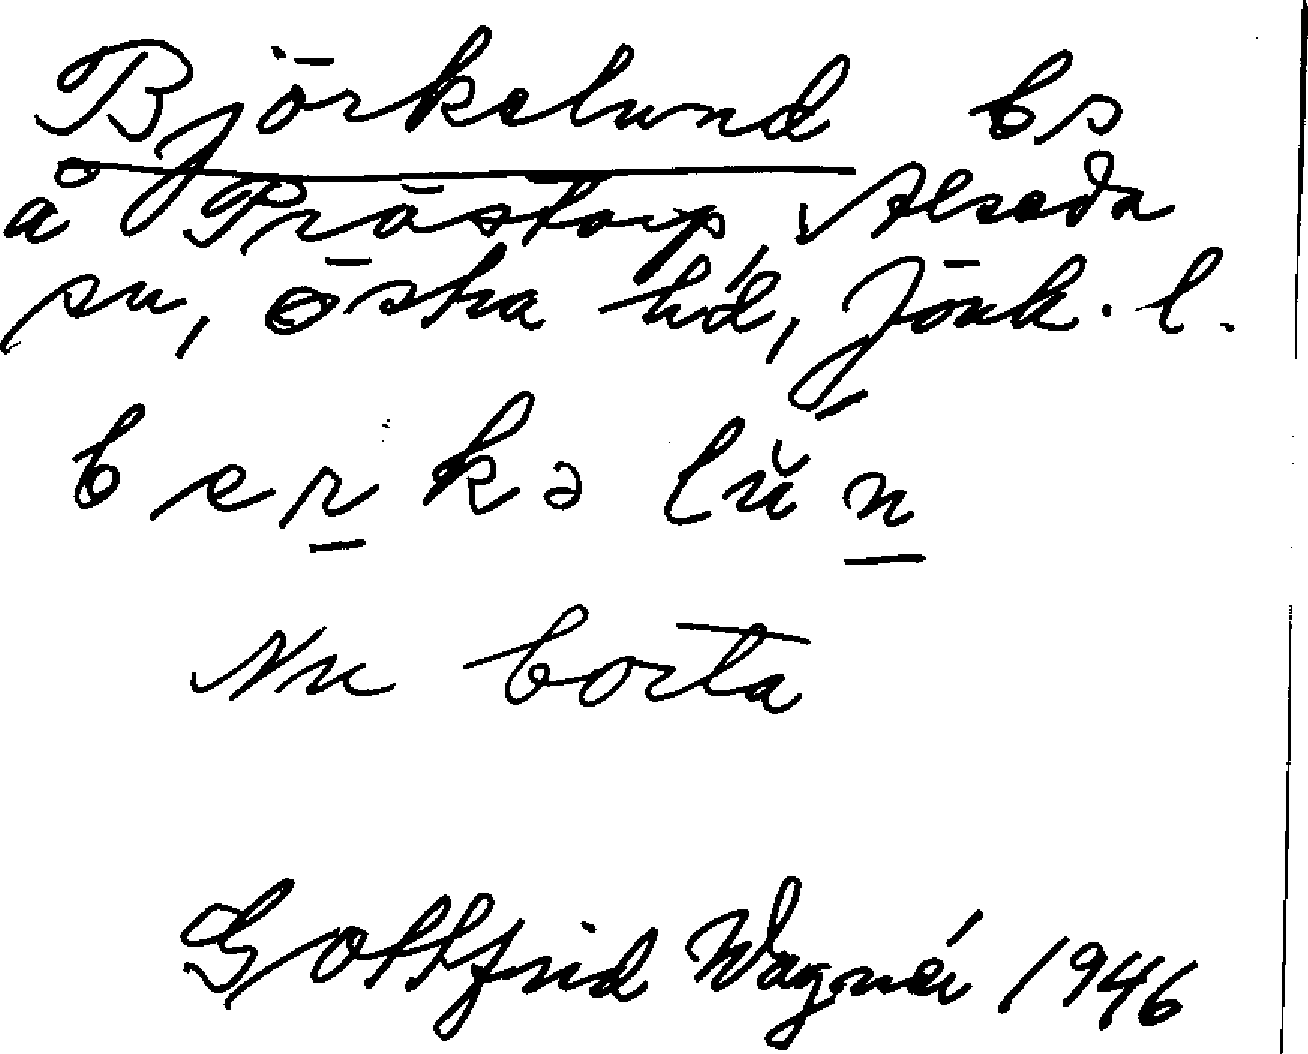 Björkelund bs
å Prästorp, Alseda
sn, östra hd, Jönk. l.
berkə lŭn
Nu borta
Gottfrid Wagnér 1946